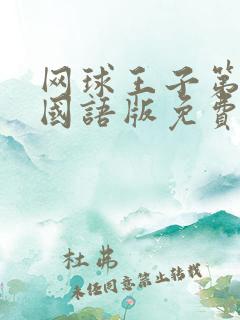 网球王子第
國語版免費
杜弗
未经同意禁止转载